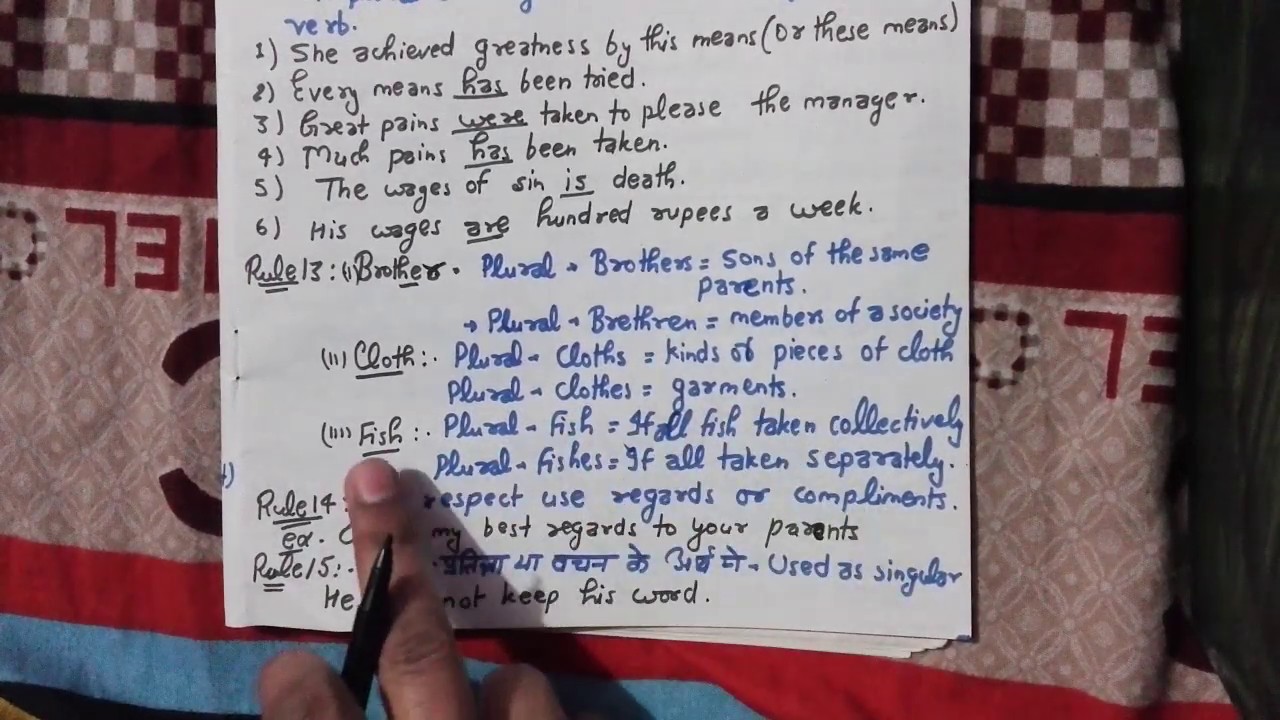 verb.
1) She achieved greatness by this means (or these means)
2) Every means has been tried.
3) Great pains were taken to please the manager.
4) Much pains has been taken.
5) The wages of sin is death.
6) His wages are hundred rupees a week.
Rule 13: (i) Brother. Plural → Brothers = sons of the same
parents.
→ Plural → Brethren = members of a society
(ii) Cloth:. Plural - Cloths = kinds of pieces of cloth
Plural - Clothes = garments.
(iii) Fish:. Plural - Fish = If all fish taken collectively
Plural - Fishes = If all taken separately.
Rule 14: respect use regards or compliments.
ex. my best regards to your parents
Rule 15:. प्रतिज्ञा या वचन के अर्थ मे - Used as singular
He not keep his word.